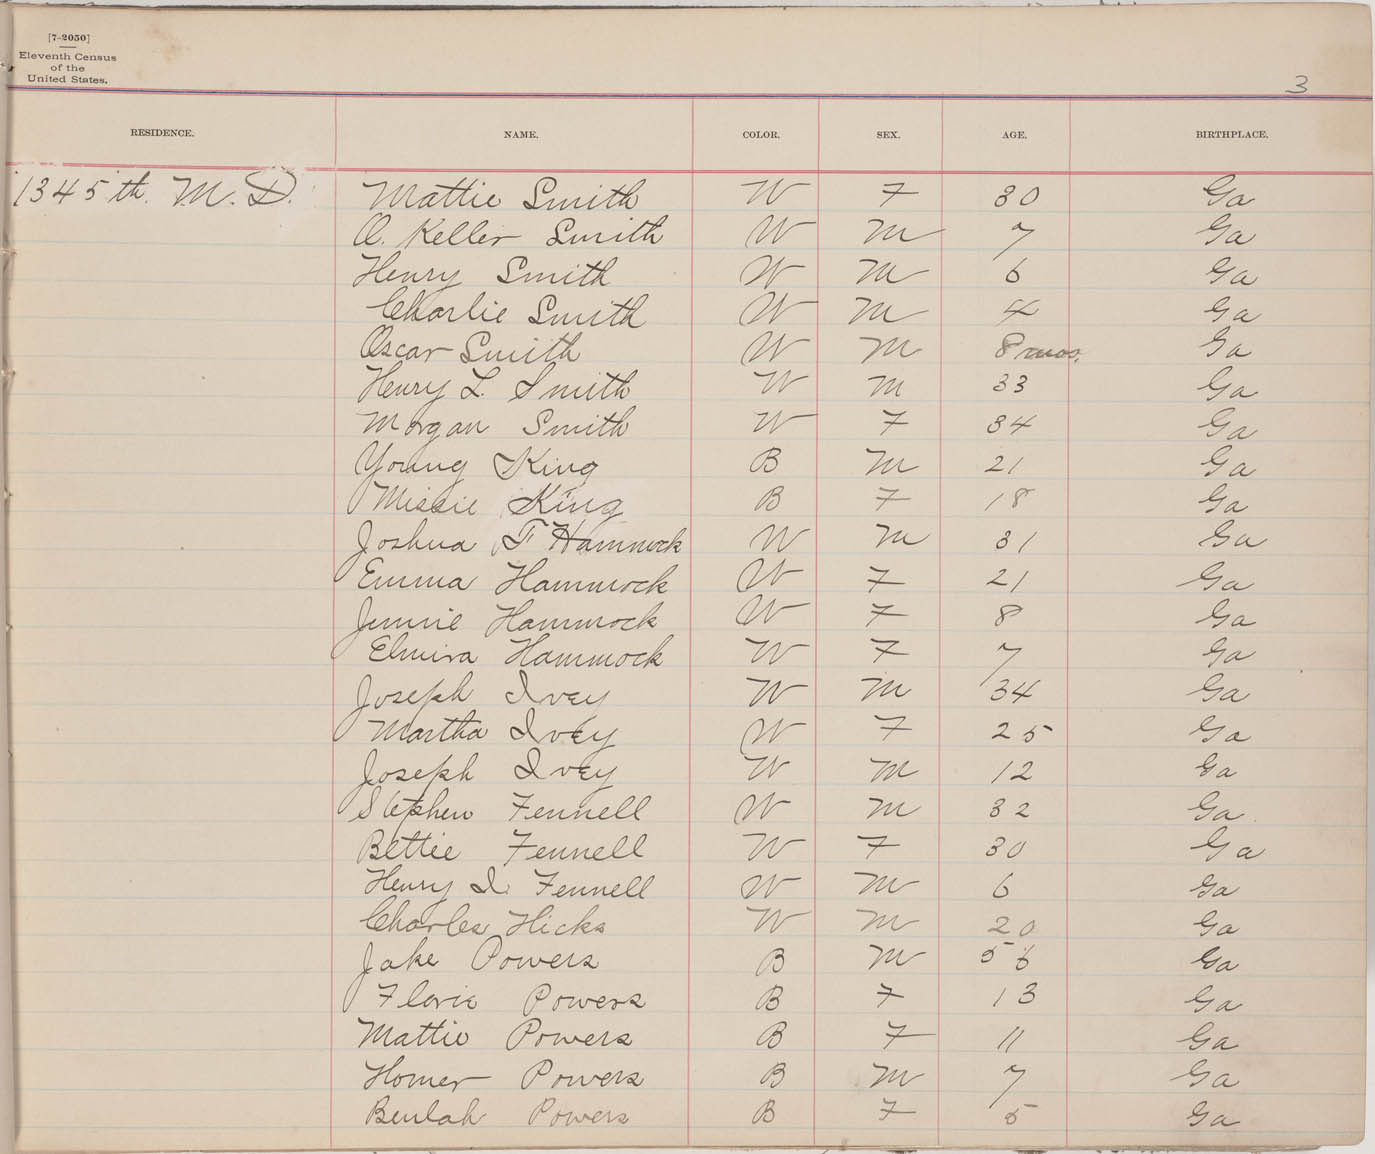 [7-2050]
Eleventh Census
of the
United States.
3
RESIDENCE. NAME. COLOR. SEX. AGE. BIRTHPLACE.
1345th. M. D. Mattie Smith W F 30 Ga
O. Keller Smith W M 7 Ga
Henry Smith W M 6 Ga
Charlie Smith W M 4 Ga
Oscar Smith W M 8 mos. Ga
Henry L. Smith W M 33 Ga
Morgan Smith W F 34 Ga
Young King B M 21 Ga
Missie King B F 18 Ga
Joshua T Hammock W M 31 Ga
Emma Hammock W F 21 Ga
Jennie Hammock W F 8 Ga
Elmira Hammock W F 7 Ga
Joseph Ivey W M 34 Ga
Martha Ivey W F 25 Ga
Joseph Ivey W M 12 Ga
Stephen Fennell W M 32 Ga
Bettie Fennell W F 30 Ga
Henry I. Fennell W M 6 Ga
Charles Hicks W M 20 Ga
Jake Powers B M 56 Ga
Florie Powers B F 13 Ga
Mattie Powers B F 11 Ga
Homer Powers B M 7 Ga
Beulah Powers B F 5 Ga